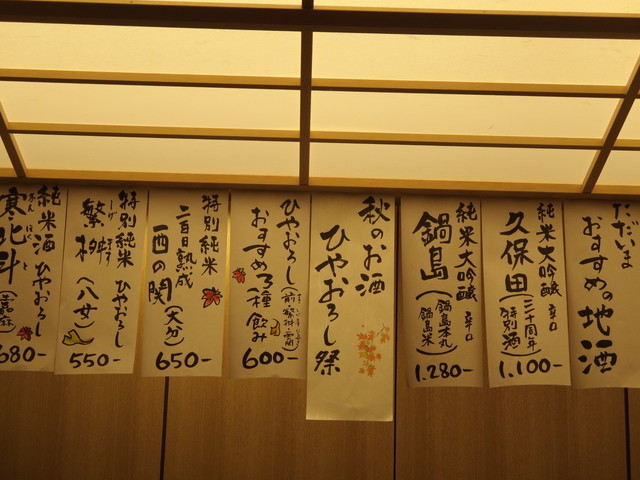 ただいま
おすすめの地酒
純米大吟醸 辛口
久保田
(三十周年
特別酒)
1.100-
純米大吟醸 辛口
鍋島
(鍋島本丸
鍋島米)
1.280-
秋のお酒
ひやおろし祭
ひやおろし
おすすめ3種飲み
600-
特別純米
二百日熟成
西の関
(大分)
650-
特別純米 ひやおろし
繁桝
しげ
ます
(八女)
550-
純米酒 ひやおろし
寒北斗
かん ほく と
(嘉麻)
680-